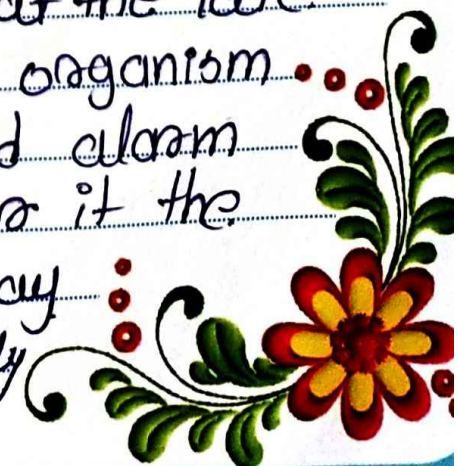 at the
organism
d alarm
it the
ay
ly